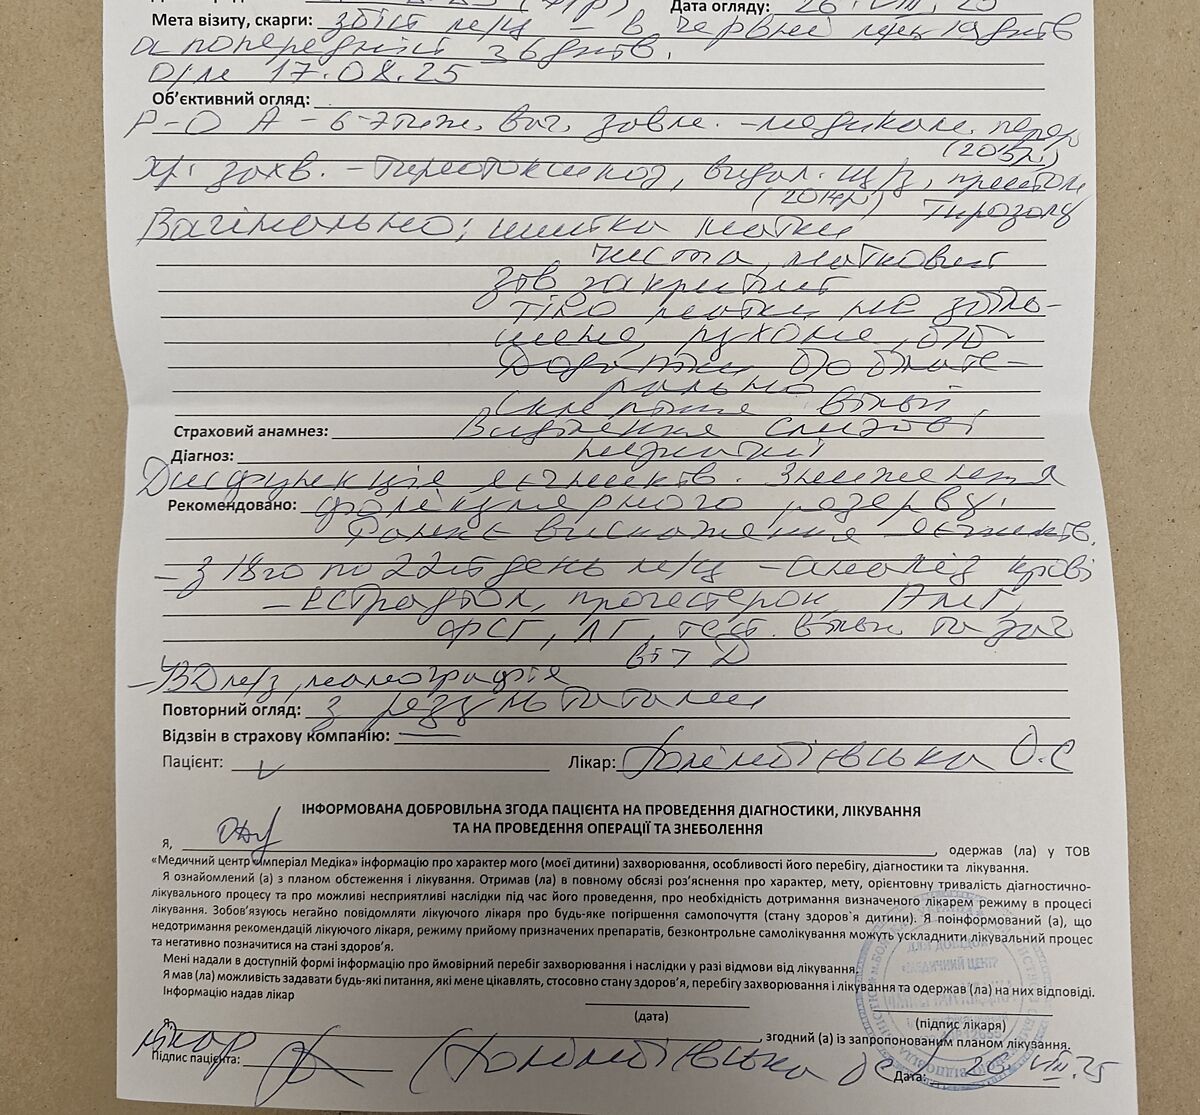 Дата огляду: 26. VIII. 25
Мета візиту, скарги: збій м/ц – в червні
а попередній 36 днів.
О/М 17.08.25
Об'єктивний огляд:
Р-0 А-6
(2015р)
Хр. захв. – тиреотоксикоз, видал. щ/з, прийом
(2014р) Тирозолу
Вагінально: шийка матки
чиста, матковий
зів закритий
Тіло матки не збіль-
шене, рухоме, б/б
Додатки б/о білате-
рально
Склепіння вільні
Страховий анамнез: Виділення слизові
Діагноз: незначні
Дисфункція яєчників. Зниження
Рекомендовано: фолікулярного резерву.
виснаження яєчників.
– З 18го по 22й день м/ц – аналіз крові
– Естрадіол, прогестерон, АМГ,
ФСГ, ЛГ, тест. вільн та заг
віт Д
мамографія
Повторний огляд: з результатами
Відзвін в страхову компанію: —
Пацієнт: v Лікар: О.С
ІНФОРМОВАНА ДОБРОВІЛЬНА ЗГОДА ПАЦІЄНТА НА ПРОВЕДЕННЯ ДІАГНОСТИКИ, ЛІКУВАННЯ
ТА НА ПРОВЕДЕННЯ ОПЕРАЦІЇ ТА ЗНЕБОЛЕННЯ
Я, , одержав (ла) у ТОВ
«Медичний центр Імперіал Медіка» інформацію про характер мого (моєї дитини) захворювання, особливості його перебігу, діагностики та лікування.
Я ознайомлений (а) з планом обстеження і лікування. Отримав (ла) в повному обсязі роз'яснення про характер, мету, орієнтовну тривалість діагностично-
лікувального процесу та про можливі несприятливі наслідки під час його проведення, про необхідність дотримання визначеного лікарем режиму в процесі
лікування. Зобов'язуюсь негайно повідомляти лікуючого лікаря про будь-яке погіршення самопочуття (стану здоров`я дитини). Я поінформований (а), що
недотримання рекомендацій лікуючого лікаря, режиму прийому призначених препаратів, безконтрольне самолікування можуть ускладнити лікувальний процес
та негативно позначитися на стані здоров'я.
Мені надали в доступній формі інформацію про ймовірний перебіг захворювання і наслідки у разі відмови від лікування.
Я мав (ла) можливість задавати будь-які питання, які мене цікавлять, стосовно стану здоров'я, перебігу захворювання і лікування та одержав (ла) на них відповіді.
Інформацію надав лікар
(дата)
(підпис лікаря)
Я , згодний (а) із запропонованим планом лікування.
лікар
Підпис пацієнта: Дата: VIII.25
«МЕДИЧНИЙ ЦЕНТР